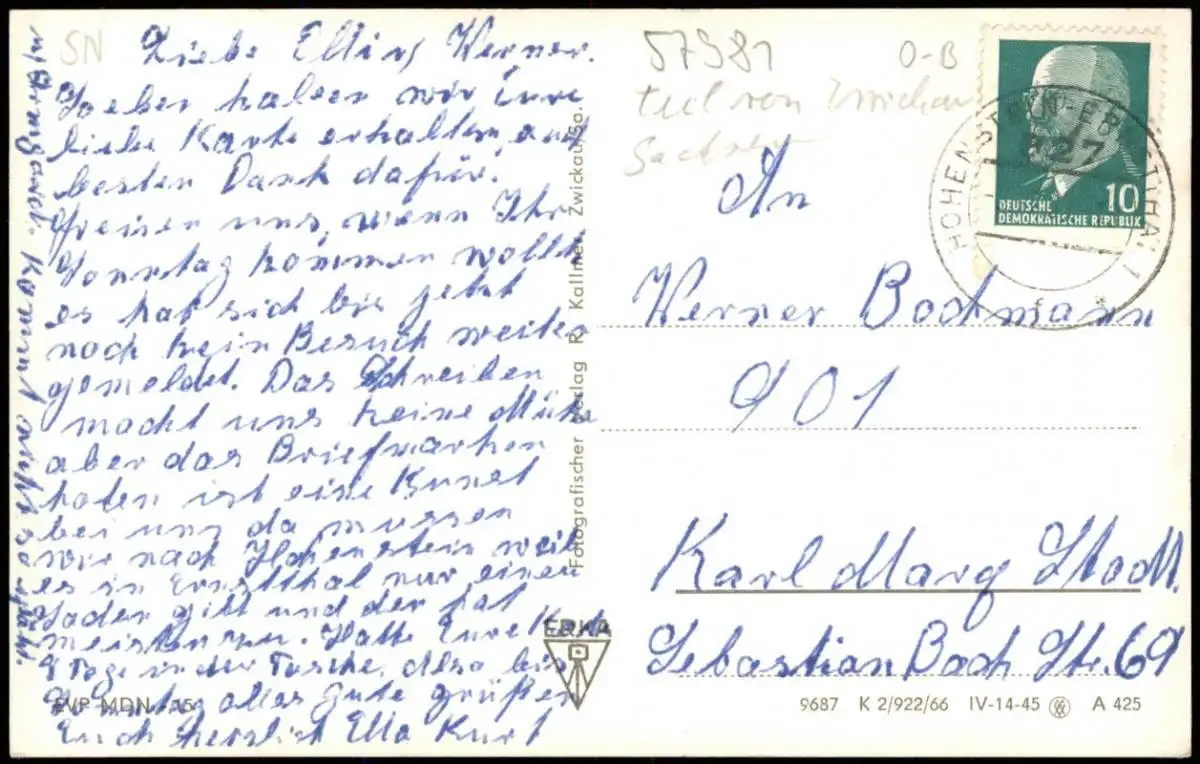 SN
Liebe Elli u. Werner.
Soeben haben wir Eure
liebe Karte erhalten, auch
besten Dank dafür.
Freuen uns, wenn Ihr
Sonntag kommen wollt
es hat sich bis jetzt
noch kein Besuch weiter
gemeldet. Das Schreiben
macht uns keine Mühe
aber das Briefmarken
holen ist eine Kunst
bei uns da müssen
wir nach Hohenstein weil
es in Ernstthal nur einen
Laden gibt und der hat
meisten zu. Hatte Eure Karte
8 Tage in der Tasche. Also bis
Sonntag alles Gute grüßen
Euch herzlich Ella Kurt
Kommt nicht so spät.
EVP MDN
Fotografischer Verlag R. Kallmer Zwickau/Sa.
ERKA
57381
O-B
teil von Zwickau
Sachsen
HOHENSTEIN-ER STTHAL 1
DEUTSCHE
DEMOKRATISCHE REPUBLIK
10
An
Werner Bochmann
901
Karl Marx Stadt.
Sebastian Bach Str. 69
9687 K 2/922/66 IV-14-45 A 425